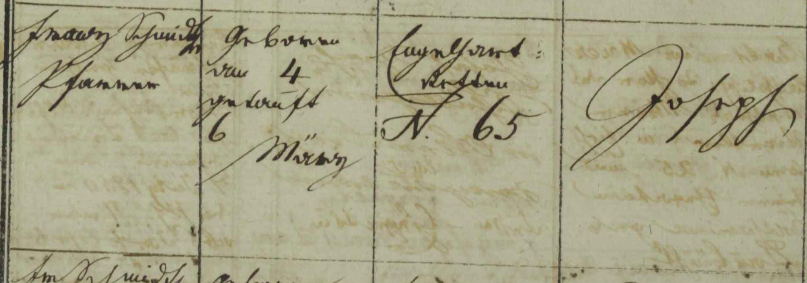 Franz Schmidt
Pfarrer
Geboren
am 4
getauft
6
März
Engelhart-
stetten
N. 65
Joseph
Fr Schmidt